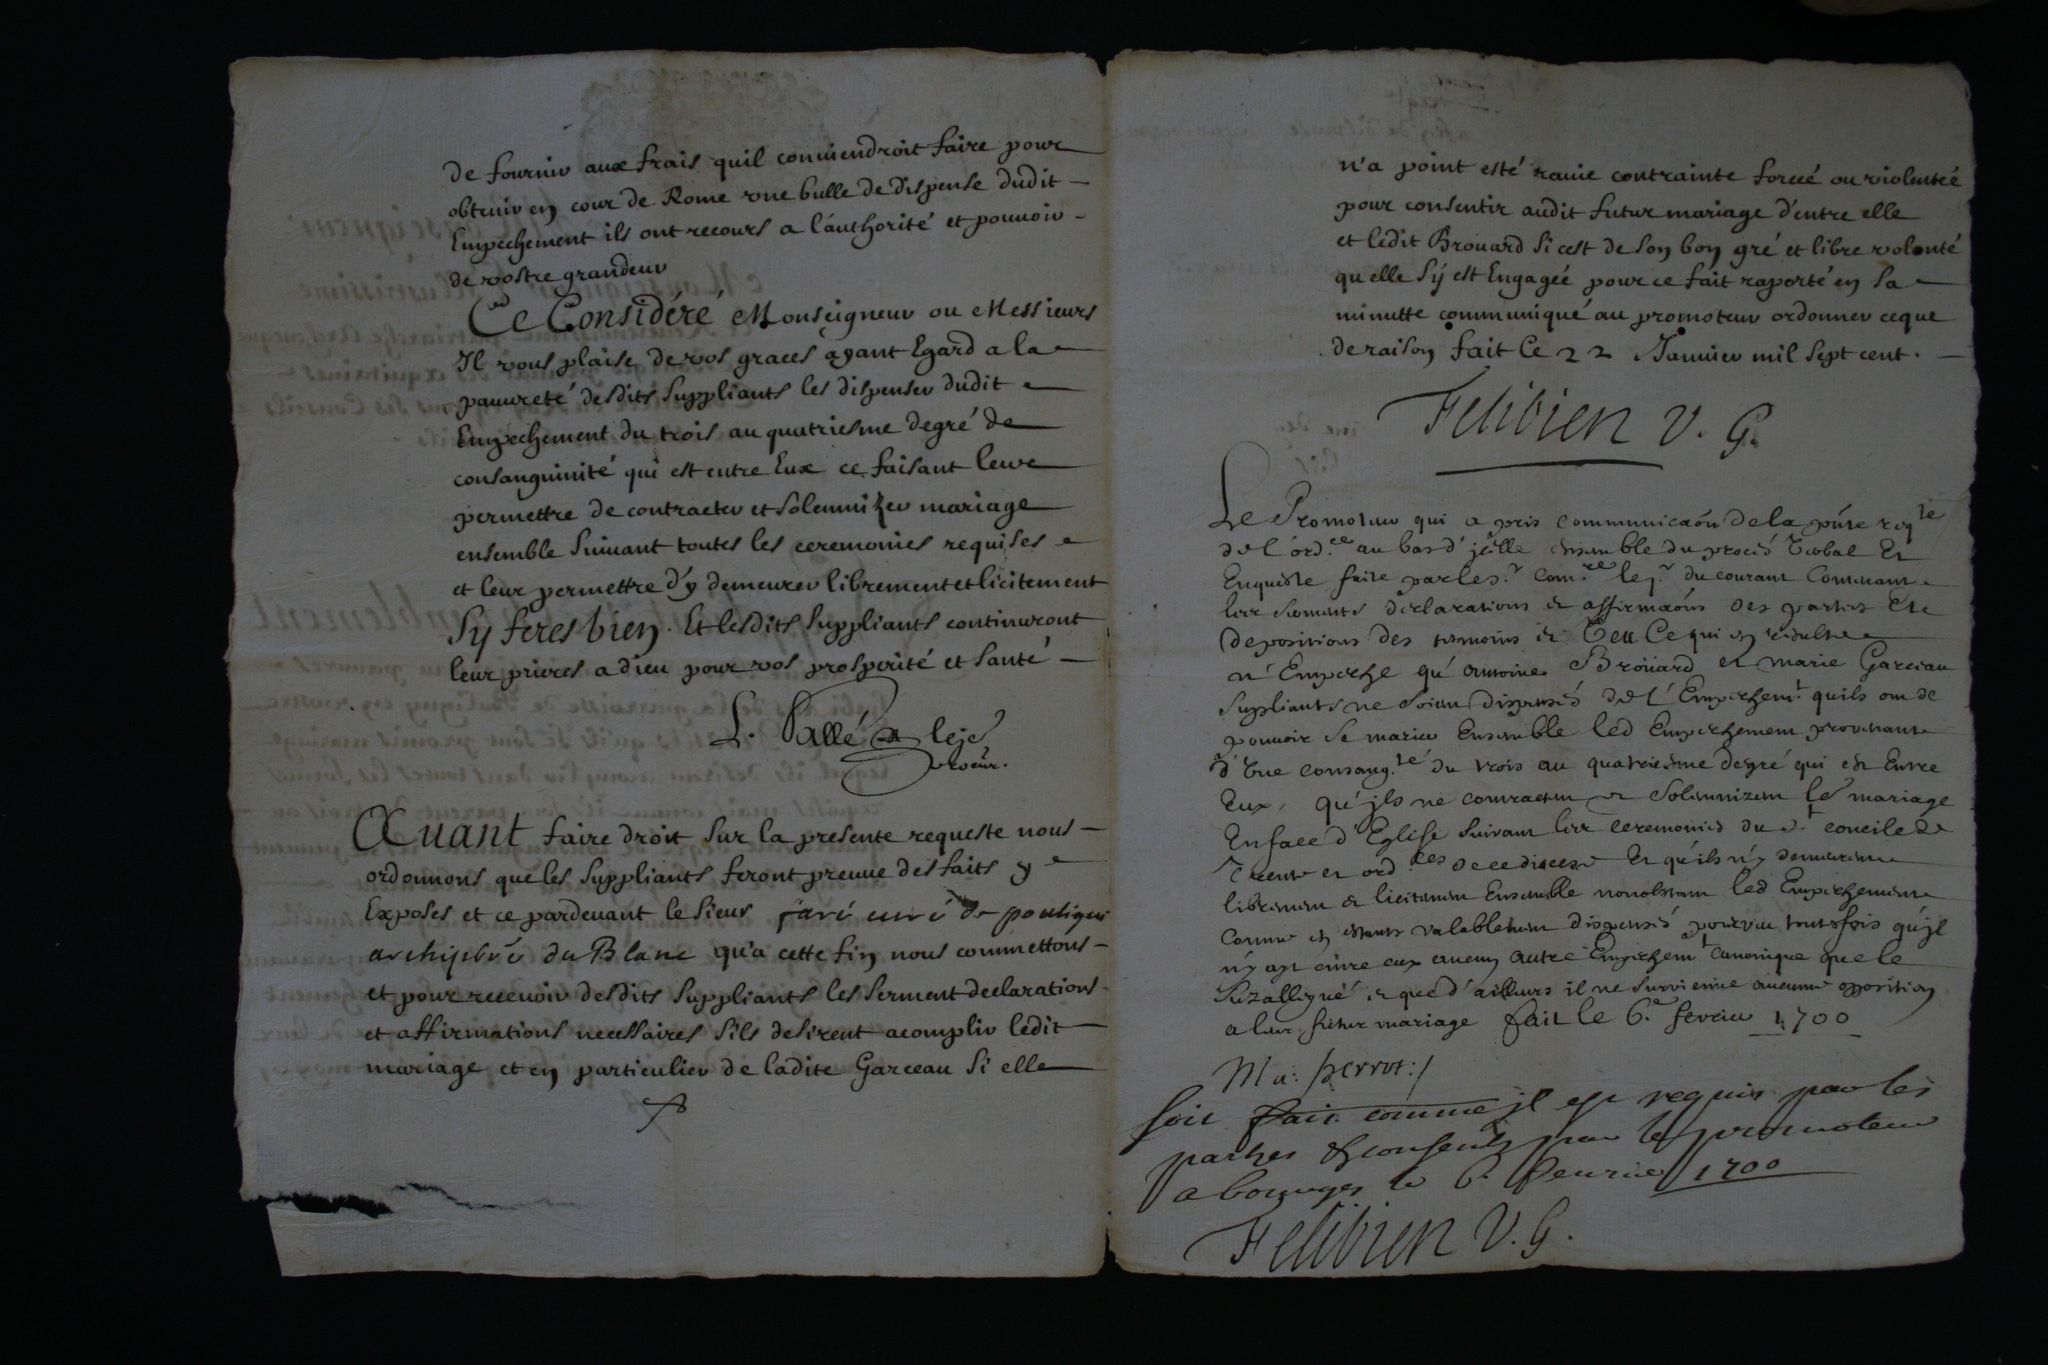 de fournir aux frais quil conuiendroit faire pour
obtenir en cour de Rome vne bulle de dispense dudit
Empechement ils ont recours a l'authorité et pouuoir
de vostre grandeur
Ce Considéré Monseigneur ou Messieurs
Il vous plaise de vos graces ayant Egard a la
pauureté desdits suppliants les dispenser dudit
Empechement du trois au quatriesme degré de
consanguinité qui est entre Eux ce faisant leur
permettre de contracter et solemnizer mariage
ensemble suiuant toutes les ceremonies requises
et leur permettre d'y demeurer librement et licitement
Sy feres bien. Et lesdits suppliants continuront
leur prieres a dieu pour vos prosperité et santé
L. Vallé leje
Auant faire droit sur la presente requeste nous
ordonnons que les suppliants feront preuue des faits y
Exposes et ce pardeuant le sieur curé de pouligni
archiptre du Blanc qu'a cette fin nous commettons
et pour receuoir desdits suppliants les serment declarations
et affirmations necessaires sils desirent acomplir ledit
mariage et en particulier de ladite Garceau si elle
n'a point esté rauie contrainte forcée ou violentée
pour consentir audit futur mariage d'entre elle
et ledit Brouard si cest de son bon gré et libre volonté
qu elle sy est Engagée pour ce fait raporté en sa
minutte communiqué au promoteur ordonner ceque
de raison fait Ce 22 Januier mil sept cent.
Felibien V. G.
Le Promoteur qui a pris communicaon de la pnte reqte
de l'ord.ce au bas d'jcelle ensemble du procés verbal Et
Enqueste faite par le s.r com.re le j.r du courant Contenant
les serments declarations et affirmaons des parties Et
depositions des tesmoins et Veu Ce qui en resulte
n'Empesche qu'antoine Broüard et marie Garceau
suppliants ne soient dispensés de l'Empeschem.t quils ont de
pouuoir se marier Ensemble led Empeschement prouenant
d'Vne consang.té du trois au quatriesme degré qui est Entre
Eux, qu'jls ne contractent et solemnizent le mariage
En face d'Eglise suiuant les ceremonies du s.t concile de
Trente et ord.ces de ce diocese Et qu'ils n'y demeurent
librement et licitement Ensemble nonobstant led Empeschement
comme en estants valablement dispensés pourueu toutesfois qu'jl
n'y ayt entre eux aucun autre Empeschem.t canonique que le
susallegué et que d'ailleurs il ne suruienne aucune opposition
a leur futur mariage fait le 6.e feurier 1700
Ma: perrot:/
soit fait comme jl est requis par les
parties & consenty par le promoteur
a bourges le 6. feurier 1700
Felibien V. G.